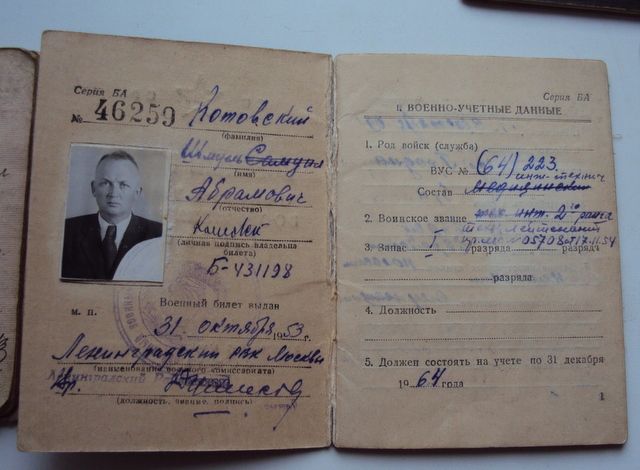 Серия БА
№ 46259 Котовский
(фамилия)
Шмуль Самуил
(имя)
Абрамович
(отчество)
(личная подпись владельца
билета)
Б-431198
Военный билет выдан
М. П.
31. октября 1953 г.
Ленинградский РВК Москвы
(наименование военного комиссариата)
(должность, звание, подпись)
Серия БА
I. ВОЕННО-УЧЕТНЫЕ ДАННЫЕ
1. Род войск (служба)
ВУС № (64) 223.
инж-технич
Состав
2. Воинское звание тех. инж. 2го ранга
техн. лейтенант
3. Запас I разряда разряд
пр. МВО № 0570 от 17.11.54
разряда
4. Должность
5. Должен состоять на учете по 31 декабря
1964 года
1